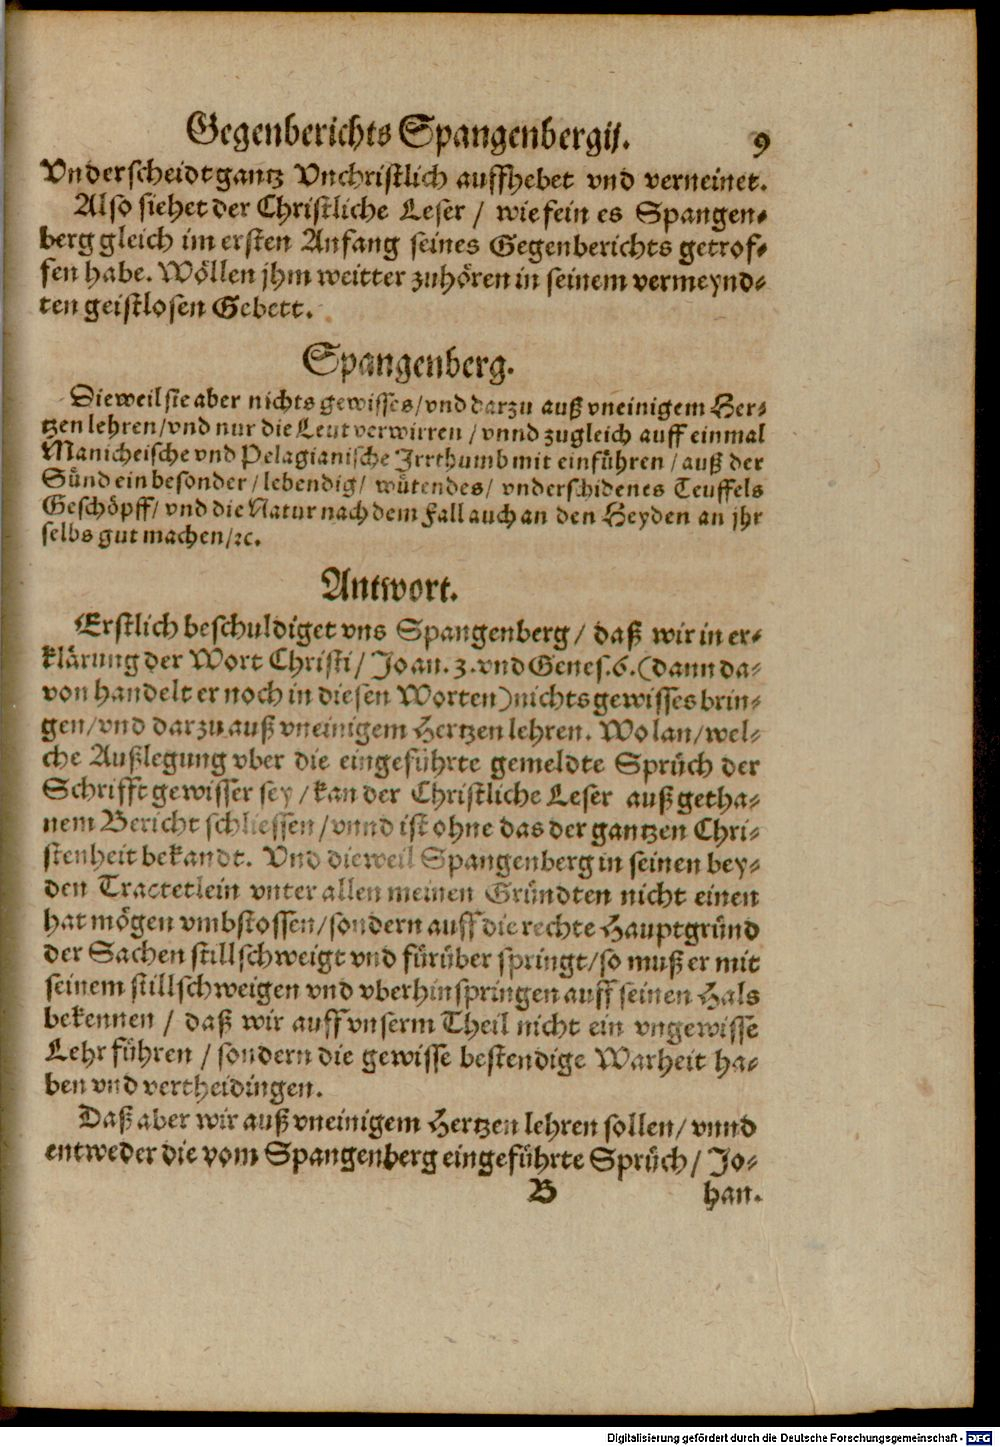 Gegenberichts Spangenbergij. 9
Vnderscheidt gantz Vnchristlich auffhebet vnd verneinet.
Also siehet der Christliche Leser / wie fein es Spangen-
berg gleich im ersten Anfang seines Gegenberichts getrof-
fen habe. Wöllen jhm weitter zuhören in seinem vermeynd-
ten geistlosen Gebett.
Spangenberg.
Dieweil sie aber nichts gewisses / vnd darzu auß vneinigem Her-
tzen lehren / vnd nur die Leut verwirren / vnnd zugleich auff einmal
Manicheische vnd Pelagianische Jrrthumb mit einführen / auß der
Sünd ein besonder / lebendig / wütendes / vnderschidenes Teuffels
Geschöpff / vnd die Natur nach dem Fall auch an den Heyden an jhr
selbs gut machen / ꝛc.
Antwort.
Erstlich beschuldiget vns Spangenberg / daß wir in er-
klärung der Wort Christi / Joan. 3. vnd Genes. 6. (dann da-
von handelt er noch in diesen Worten) nichts gewisses brin-
gen / vnd darzu auß vneinigem Hertzen lehren. Wolan / wel-
che Außlegung vber die eingeführte gemeldte Sprüch der
Schrifft gewisser sey / kan der Christliche Leser auß getha-
nem Bericht schliessen / vnnd ist ohne das der gantzen Chri-
stenheit bekandt. Vnd dieweil Spangenberg in seinen bey-
den Tractetlein vnter allen meinen Gründten nicht einen
hat mögen vmbstossen / sondern auff die rechte Hauptgründ
der Sachen stillschweigt vnd fürüber springt / so muß er mit
seinem stillschweigen vnd vberhinspringen auff seinen Hals
bekennen / daß wir auff vnserm Theil nicht ein vngewisse
Lehr führen / sondern die gewisse bestendige Warheit ha-
ben vnd vertheidingen.
Daß aber wir auß vneinigem Hertzen lehren sollen / vnnd
entweder die vom Spangenberg eingeführte Sprüch / Jo-
B han.
Digitalisierung gefördert durch die Deutsche Forschungsgemeinschaft - DFG